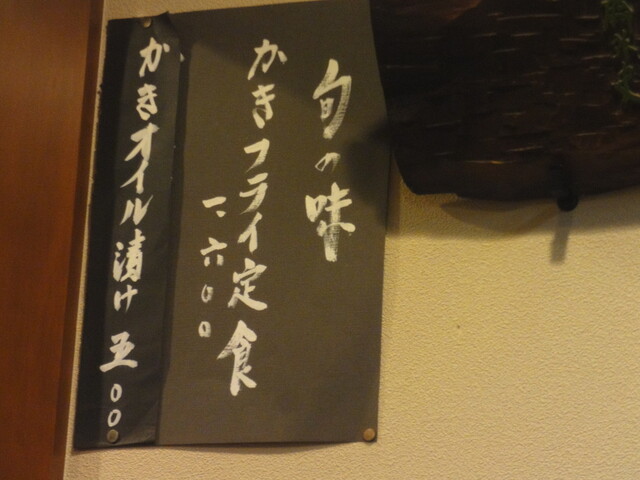 旬の味
かきフライ定食
一、六〇〇
かきオイル漬け 五〇〇